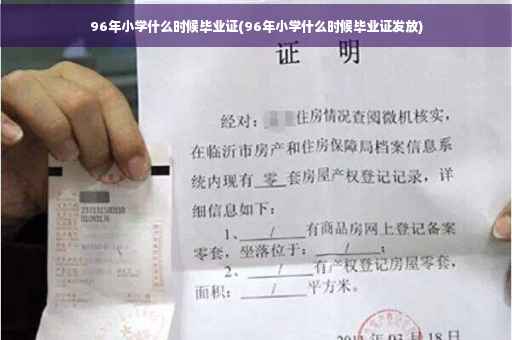 96年小学什么时候毕业证(96年小学什么时候毕业证发放)
证 明
经对：住房情况查阅微机核实，
在临沂市房产和住房保障局档案信息系
统内现有 零 套房屋产权登记记录，详
细信息如下：
1、 / 有商品房网上登记备案
零套，坐落位于： / ；
2、 / 有产权登记房屋零套，
面积： / 平方米。
03月18日